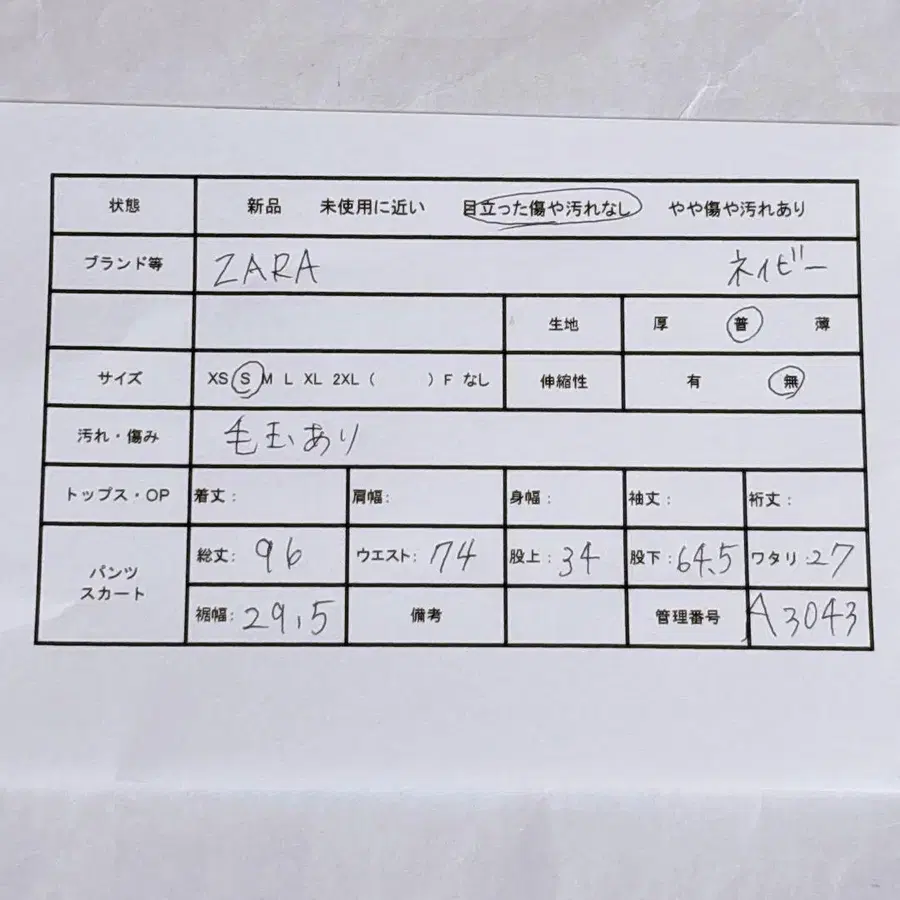 状態 新品 未使用に近い 目立った傷や汚れなし やや傷や汚れあり
ブランド等 ZARA ネイビー
生地 厚 普 薄
サイズ XS S M L XL 2XL ( ) F なし 伸縮性 有 無
汚れ・傷み 毛玉あり
トップス・OP 着丈: 肩幅: 身幅: 袖丈: 裄丈:
パンツ
スカート
総丈: 96 ウエスト: 74 股上: 34 股下: 64.5 ワタリ: 27
裾幅: 29.5 備考 管理番号 A3043